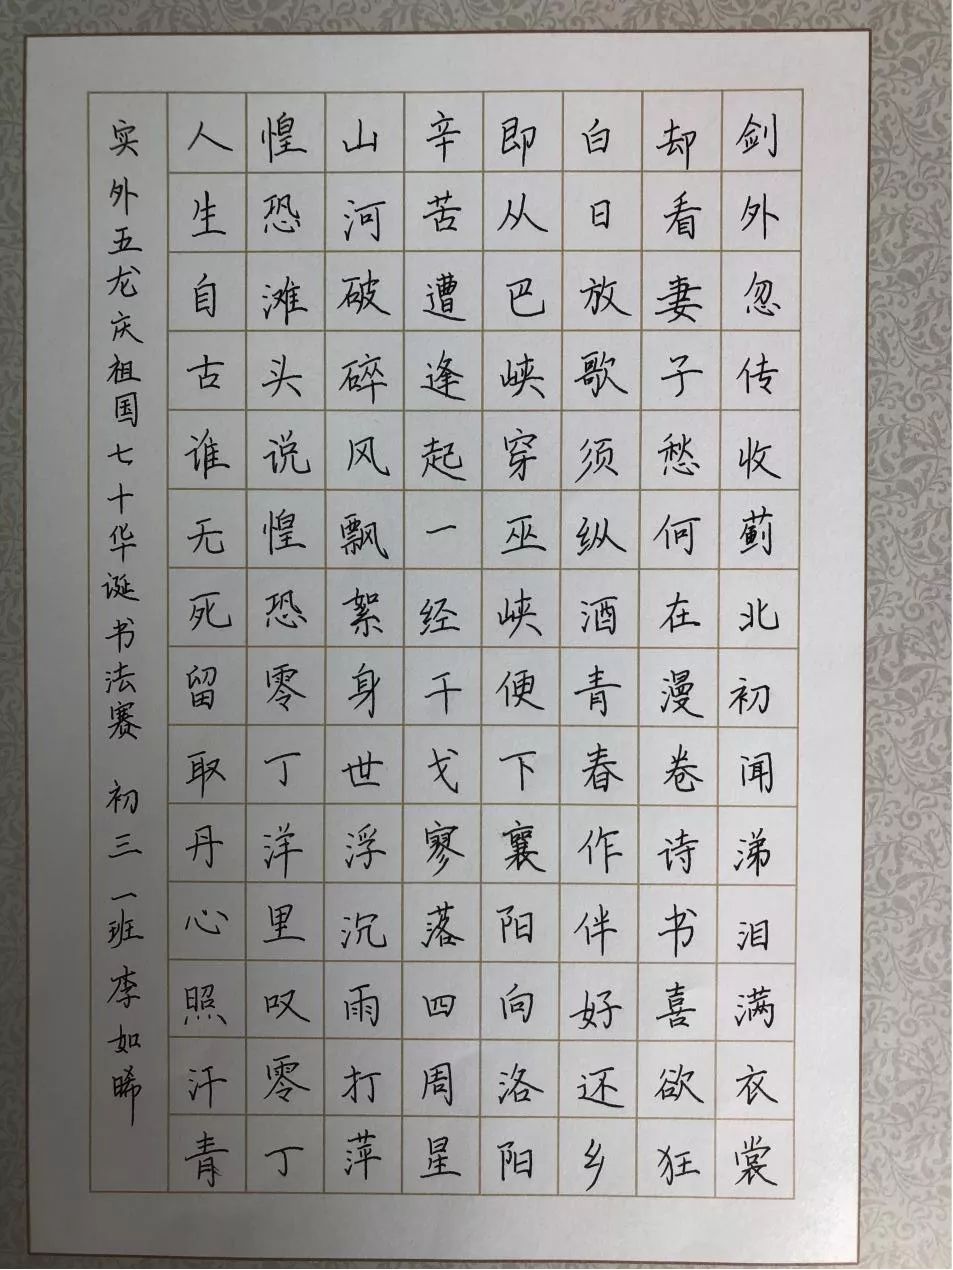 剑外忽传收蓟北初闻涕泪满衣裳
却看妻子愁何在漫卷诗书喜欲狂
白日放歌须纵酒青春作伴好还乡
即从巴峡穿巫峡便下襄阳向洛阳
辛苦遭逢起一经干戈寥落四周星
山河破碎风飘絮身世浮沉雨打萍
惶恐滩头说惶恐零丁洋里叹零丁
人生自古谁无死留取丹心照汗青
实外五龙庆祖国七十华诞书法赛 初三一班李如晞